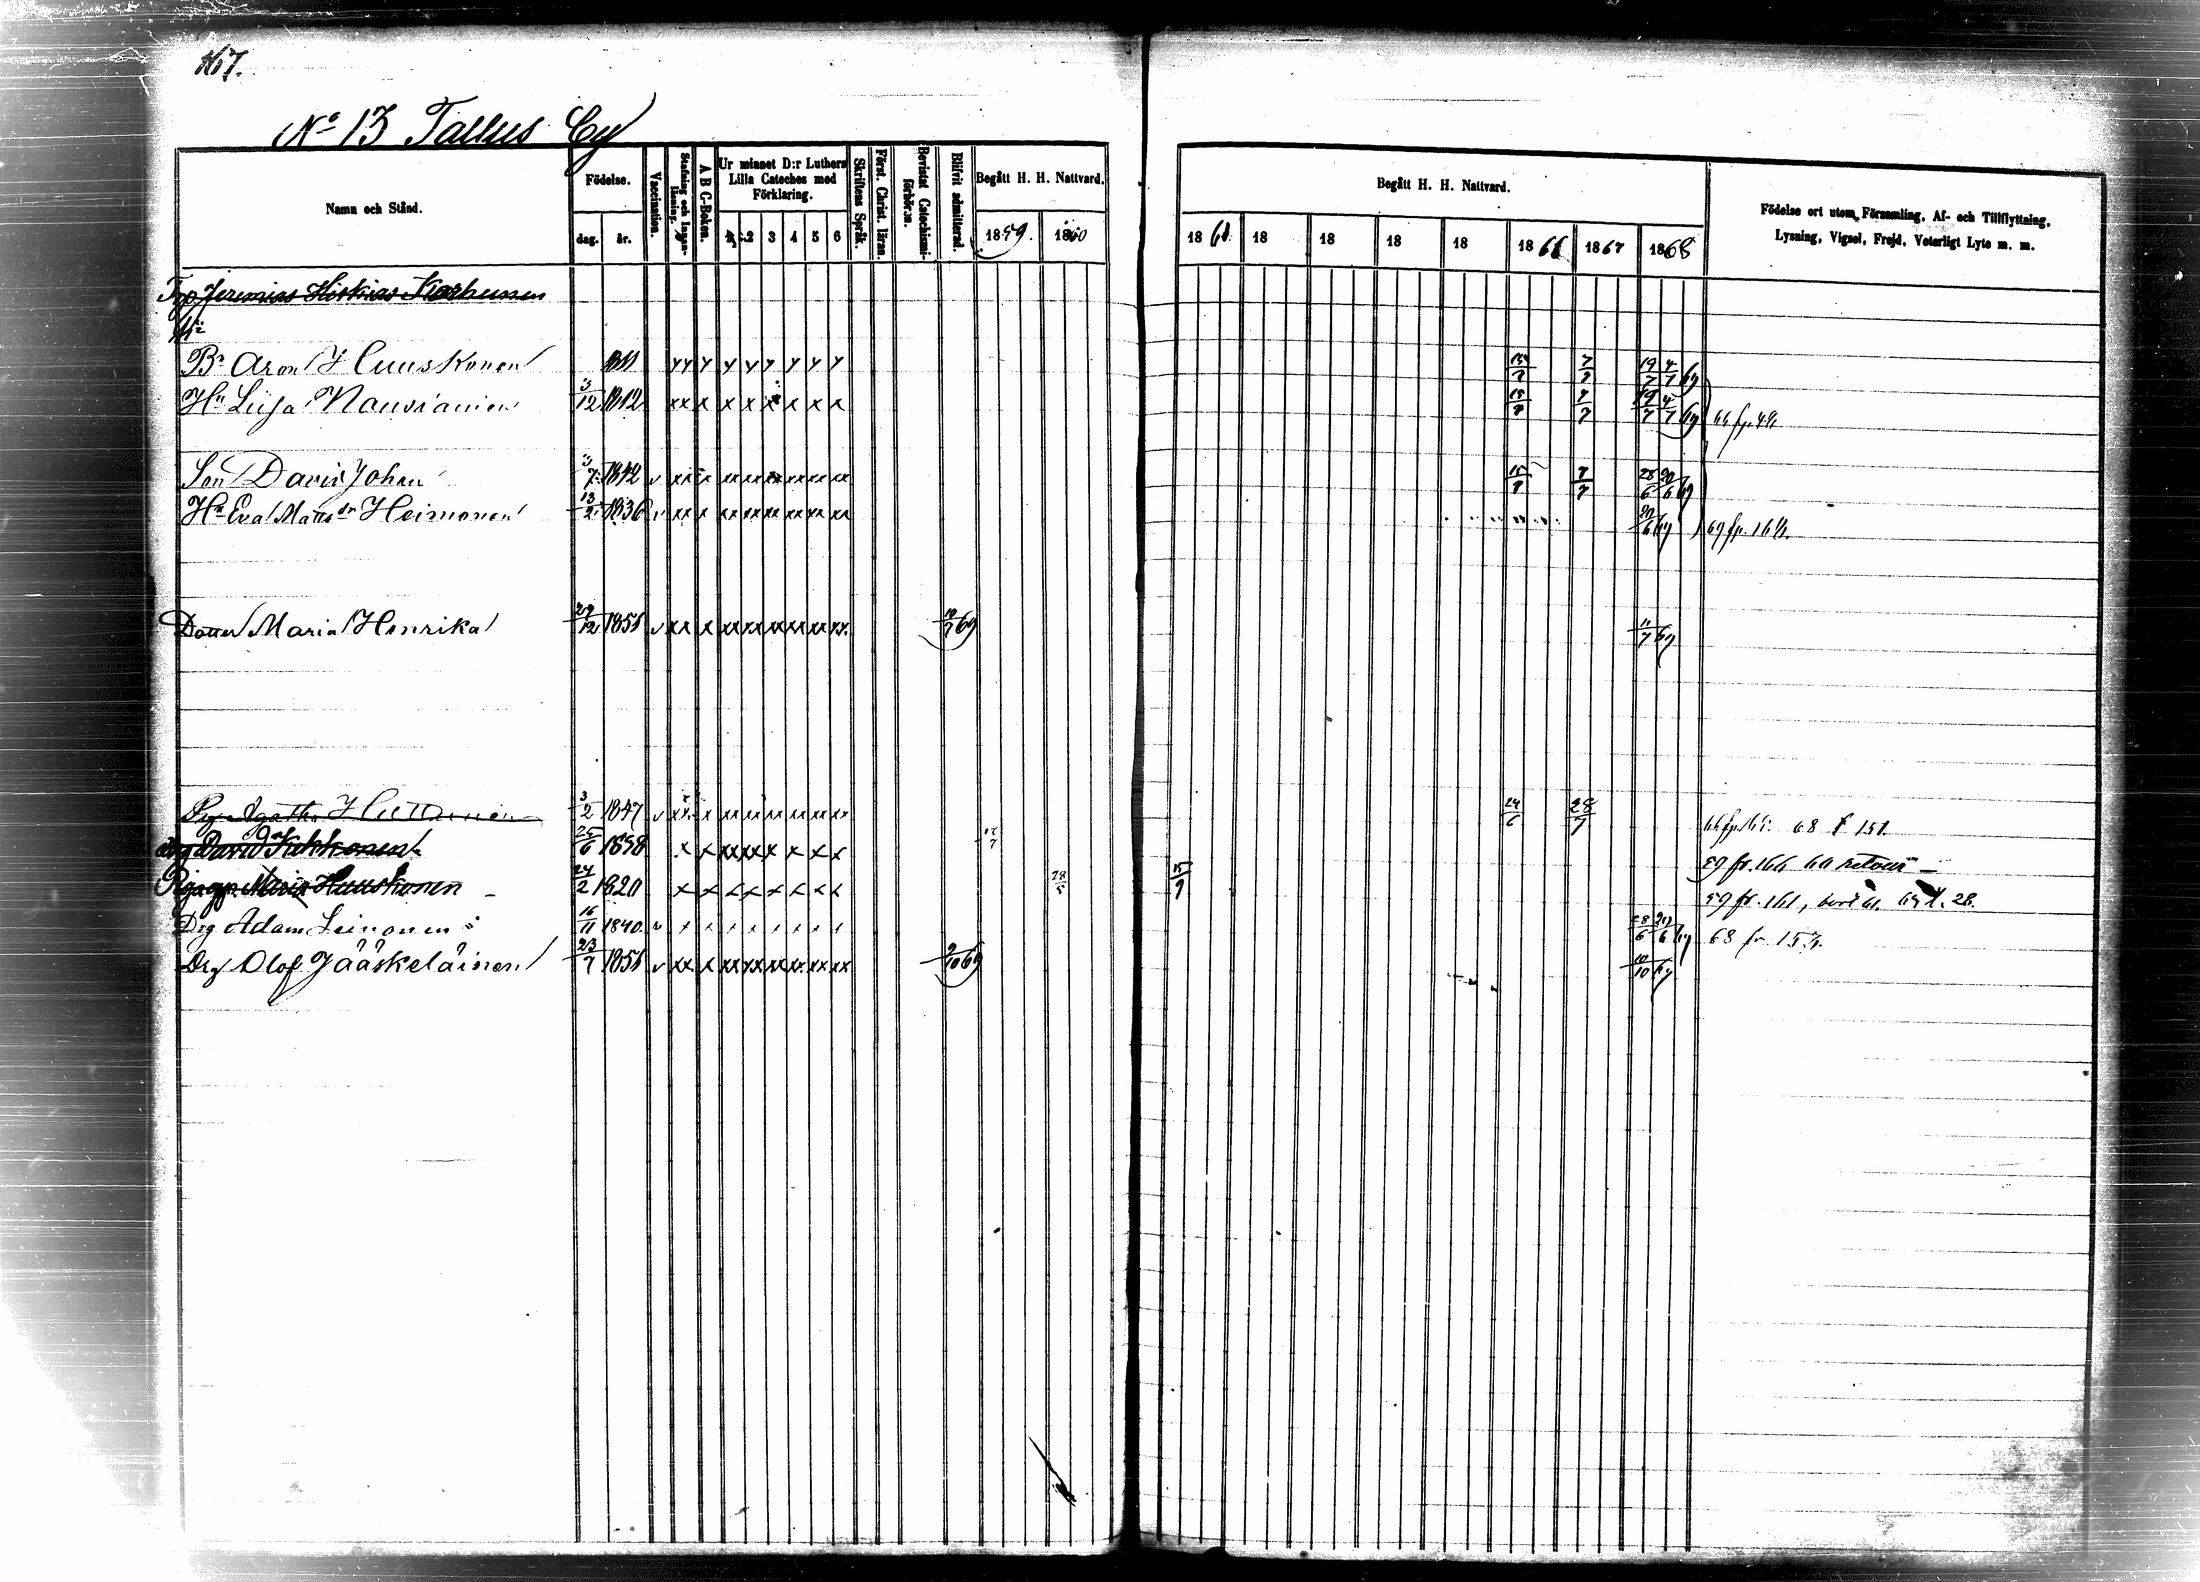 167.
No 13 Tallus By
Namn och Stånd. Födelse. dag. år. Vaccination. Stafning och Innanläsning. A B C-Boken. Ur minnet D:r Luthers Lilla Cateches med Förklaring. 1 2 3 4 5 6 Skriftens Språk. Först. Christ. läran. Bevistat Catechismiförhören. Blifvit admitterad. Begått H. H. Nattvard. 1859. 1860
Begått H. H. Nattvard. 1861 18 18 18 18 1866 1867 1868 Födelse ort utom Församling, Af- och Tillflyttning, Lysning, Vigsel, Frejd, Veterligt Lyte m. m.
Jeremias Hiskias Korhunen
Br Aron Huuskonen y y y y y y y y y 15/7 7/7 19/7 4/7 69
Hu Lisa 3/12 1812 x x x x x x x x x 15/7 7/7 19/7 4/7 69
Son David Johan 3/7 1842 v xx x xx xx xx xx xx xx 15/7 7/7 28/6 20/6 69
Hu Eva Mattsdr Heimonen 13/2 1836 v xx x xx xx xx xx xx xx 20/6 69 69 fr. 16
Dotter Maria Henrika 29/12 1851 v xx x xx xx xx xx xx xx 10/7 69 11/7 69
Pig Agatha Huttunen 3/2 1847 v xx x xx xx xx xx xx xx 24/6 28/7 68 t 151
David Kukkonen 25/6 1838 x x xx xx x x x x 17/7 59 fr. 166 60 retour
Maria Huuskonen 24/2 1820 x x x x x x x x 28/5 15/9 59 fr. 161, bort 61. 69 t. 28.
Drg Adam Leinonen 16/11 1840 v 28/6 20/6 69 68 fr. 157.
Drg Olof Jääskeläinen 23/7 1851 v xx x xx xx xx xx xx xx 9/10 69 10/10 69